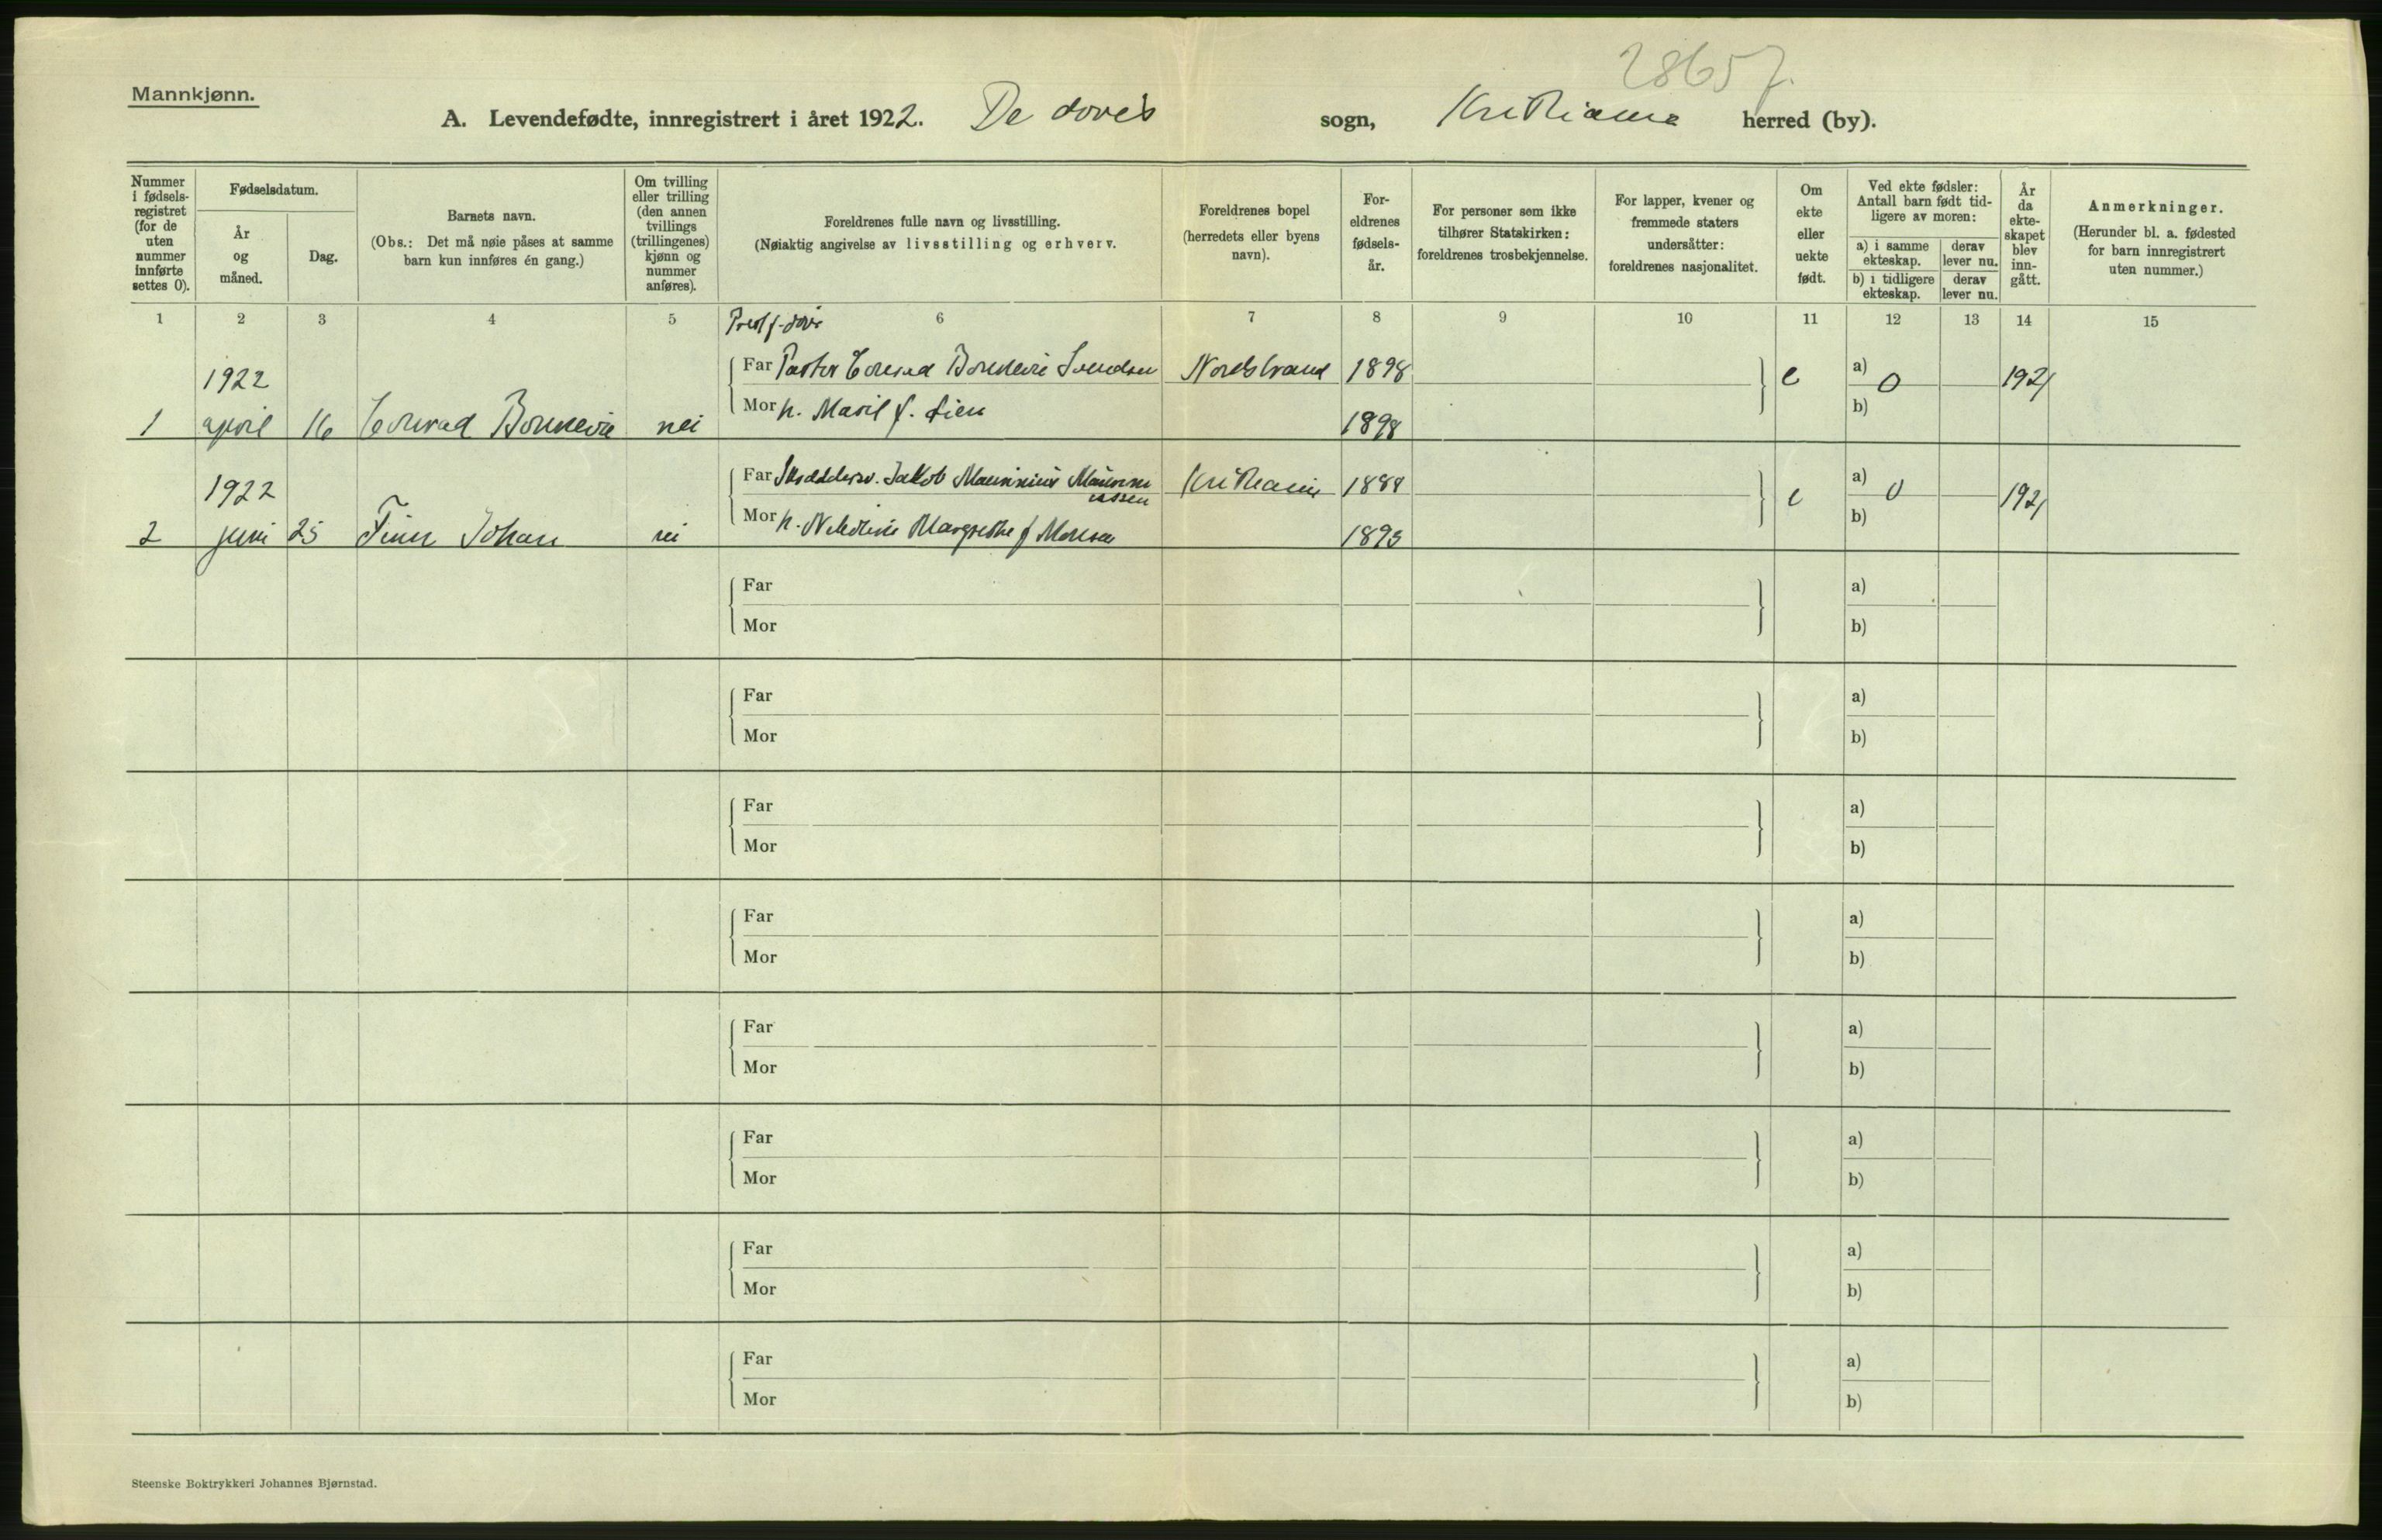 28657.
Mannkjønn.
A. Levendefødte, innregistrert i året 1922. De døves sogn, Kristiania herred (by).
Nummer i fødselsregistret (for de uten nummer innførte settes 0).
Fødselsdatum.
År og måned.
Dag.
Barnets navn.
(Obs.: Det må nøie påses at samme barn kun innføres én gang.)
Om tvilling eller trilling (den annen tvillings (trillingenes) kjønn og nummer anføres).
Foreldrenes fulle navn og livsstilling.
(Nøiaktig angivelse av livsstilling og erhverv.
Foreldrenes bopel (herredets eller byens navn).
Foreldrenes fødselsår.
For personer som ikke tilhører Statskirken: foreldrenes trosbekjennelse.
For lapper, kvener og fremmede staters undersåtter: foreldrenes nasjonalitet.
Om ekte eller uekte født.
Ved ekte fødsler: Antall barn født tidligere av moren:
a) i samme ekteskap.
derav lever nu.
b) i tidligere ekteskap.
derav lever nu.
År da ekteskapet blev inngått.
Anmerkninger.
(Herunder bl. a. fødested for barn innregistrert uten nummer.)
1 2 3 4 5 6 7 8 9 10 11 12 13 14 15
Prest f. døve
1922 Far Pastor Conrad Bonnevie Svendsen Nordstrand 1898 e a) 0 1921
1 april 16 Conrad Bonnevie nei Mor h. Maril f. Lien 1898 b)
1922 Far Jakob Kristiania 1888 e a) 0 1921
2 juni 25 Finn Johan nei Mor h. Margrethe f 1895 b)
Far a)
Mor b)
Far a)
Mor b)
Far a)
Mor b)
Far a)
Mor b)
Far a)
Mor b)
Far a)
Mor b)
Far a)
Mor b)
Far a)
Mor b)
Steenske Boktrykkeri Johannes Bjørnstad.